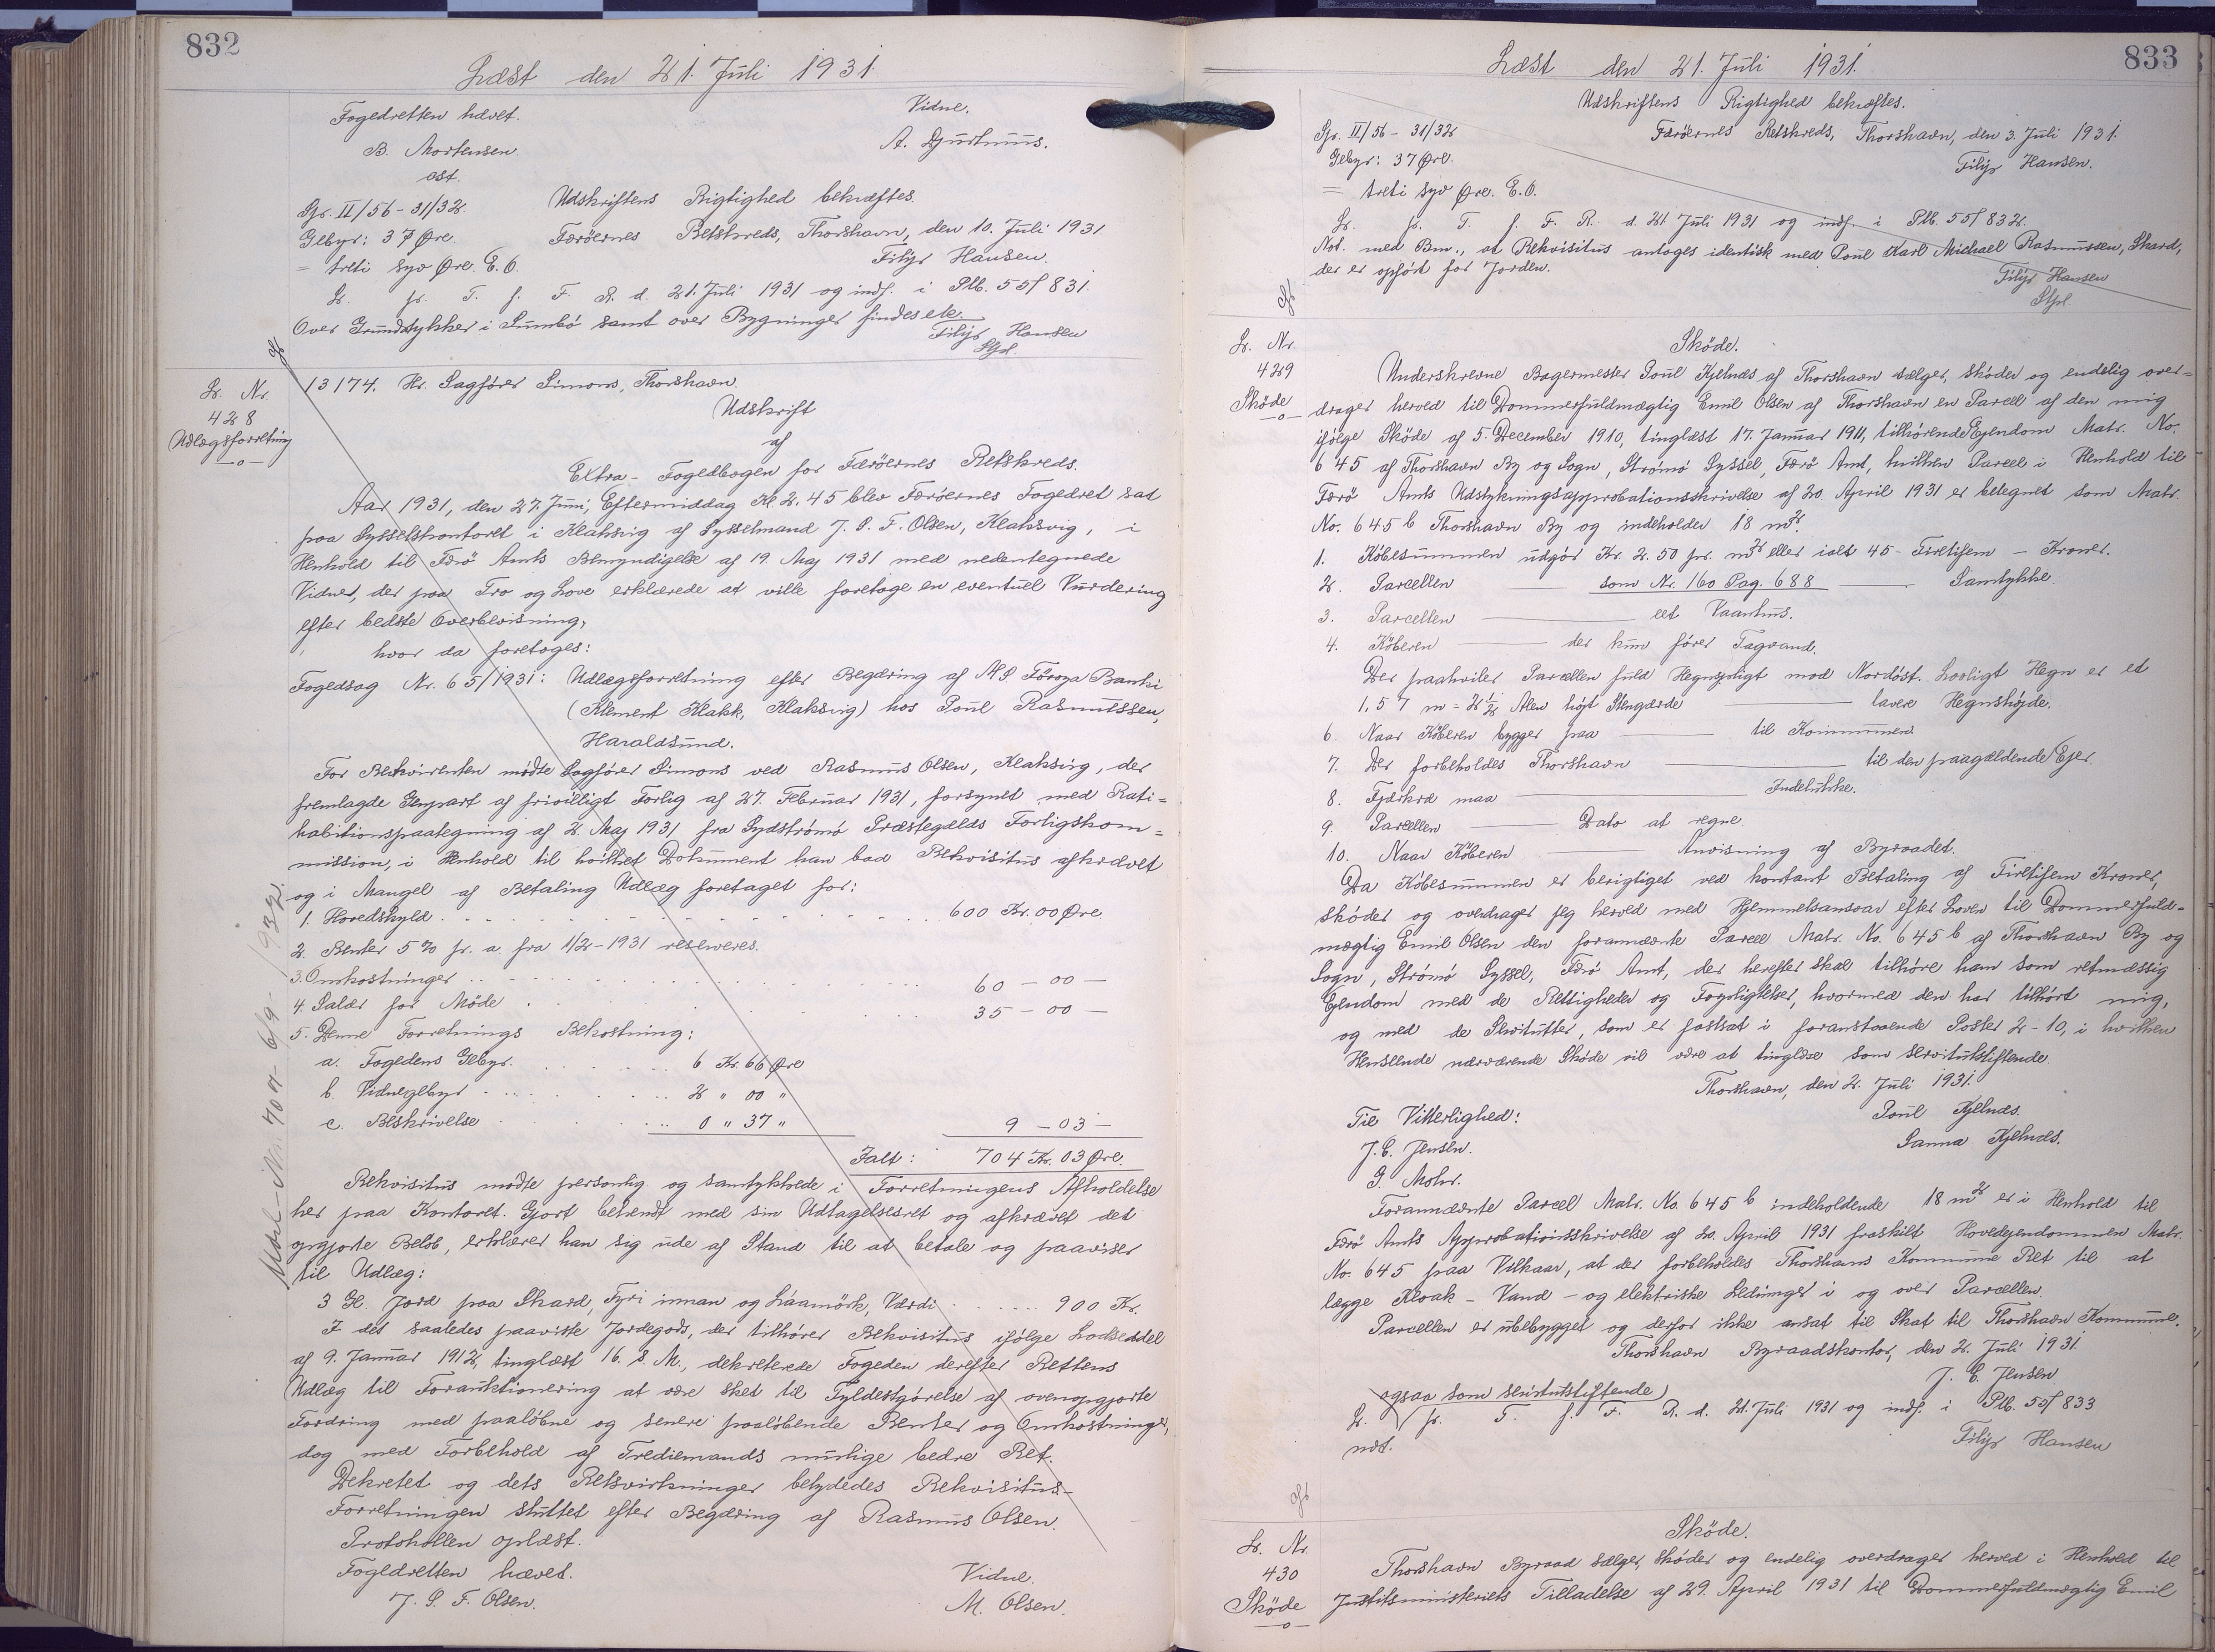 832
Læst den 21. Juli 1931.
Fogedretten hævet.
Vidne.
B. Mortensen.
A. Djurhuus.
cst.
Gr. II/56-31/32.
Udskriftens Rigtighed bekræftes.
Gebyr: 37 Øre.
Færöernes Retskreds, Thorshavn, den 10. Juli 1931
= treti syv Øre. E.O.
Filip Hansen.
L. p. T. f. F. R. d. 21. Juli 1931 og indf. i Plb. 55f 831.
Over Grundstykker i Sumbö samt over Bygninger findes ele.
Filip Hansen
Stfd
L. Nr.
428
Udlægsforretning
—o—
13174. Hr. Sagförer Simons, Thorshavn.
Udskrift
af
Extra-Fogedbogen for Færöernes Retskreds.
Aar 1931, den 27. Juni, Eftermiddag Kl 2.45 blev Færöernes Fogedret sat
paa Sysselskontoret i Klaksvig af Sysselmand J. P. F. Olsen, Klaksvig, i
Henhold til Færö Amts Bemyndigelse af 19. Maj 1931 med nedentegnede
Vidner, der paa Tro og Love erklærede at ville foretage en eventuel Vurdering
efter bedste Overbevisning,
hvor da foretoges:
Fogedsag Nr. 65/1931: Udlægsforretning efter Begæring af A/S Föroya Banki
(Klement Klakk, Klaksvig) hos Poul Rasmussen,
Haraldsund.
For Rekvirenten mödte Sagförer Simons ved Rasmus Olsen, Klaksvig, der
fremlagde Genpart af frivilligt Forlig af 27. Februar 1931, forsynet med Rati=
habitionspaategning af 2. Maj 1931 fra Sydströmö Præstegælds Forligskom=
mission, i Henhold til hvilket Dokument han bad Rekvisitus afkrævet
og i Mangel af Betaling Udlæg foretaget for:
1. Hovedskyld . . . . 600 Kr. 00 Øre.
2. Renter 5 % p. a. fra 1/2-1931 reserveres.
3. Omkostninger . . . . 60 — 00 —
4. Salær for Möde . . . . 35 — 00 —
5. Denne Forretnings Bekostning:
a. Fogedens Gebyr . . . . 6 Kr. 66 Øre
b. Vidnegebyr . . . . 2 " 00 "
c. Beskrivelse . . . . 0 " 37 " 9 — 03 —
Ialt: 704 Kr. 03 Øre.
Rekvisitus mødte personlig og samtykkede i Forretningens Afholdelse
her paa Kontoret. Gjort bekendt med sin Udtagelsesret og afkrævet det
opgjorte Belöb, erklærer han sig ude af Stand til at betale og paaviser
til Udlæg:
3 Gl. Jord paa Skard, Fyri innan og Láamörk, Værdi . . . . 900 Kr.
I det saaledes paaviste Jordegods, der tilhører Rekvisitus ifølge Lodseddel
af 9. Januar 1912, tinglæst 16. s. M., dekreterede Fogeden derefter Rettens
Udlæg til Forauktionering at være sket til Fyldestgörelse af ovenopgjorte
Fordring med paalöbne og senere paalöbende Renter og Omkostninger,
dog med Forbehold af Trediemands mulige bedre Ret.
Dekretet og dets Retsvirkninger betydedes Rekvisitus.-
Forretningen sluttet efter Begæring af Rasmus Olsen.
Protokollen oplæst.
Fogedretten hævet.
Vidne.
J. P. F. Olsen.
M. Olsen.
833
Læst den 21. Juli 1931.
Udskriftens Rigtighed bekræftes.
Gr. II/56-31/32
Færöernes Retskreds, Thorshavn, den 3. Juli 1931.
Gebyr: 37 Øre.
Filip Hansen.
= treti syv Øre. E.O.
L. p. T. f. F. R. d. 21 Juli 1931 og indf. i Plb. 55f 832.
Not. med Bm., at Rekvisitus antages identisk med Poul Karl Michael Rasmussen, Skard,
der er opfört for Jorden.
Filip Hansen
Stfd
L. Nr.
429
Sköde
—o—
Sköde.
Underskrevne Bagermester Poul Kjelnæs af Thorshavn sælger, skøder og endelig over=
drager herved til Dommerfuldmægtig Emil Olsen af Thorshavn en Parcel af den mig
ifölge Sköde af 5. December 1910, tinglæst 17. Januar 1911, tilhörende Ejendom Matr. No.
645 af Thorshavn By og Sogn, Strömö Syssel, Færö Amt, hvilken Parcel i Henhold til
Færö Amts Udstykningsapprobationsskrivelse af 20. April 1931 er betegnet som Matr.
No. 645 b Thorshavn By og indeholder 18 m².
1. Köbesummen udgör Kr. 2.50 pr. m² eller ialt 45 - Firetifem - Kroner.
2. Parcellen —— som Nr. 160 Pag. 688 —— Samtykke.
3. Parcellen —— eet Vaanhus.
4. Köberen —— der kun förer Tagvand.
Der paahviler Parcellen fuld Hegnspligt mod Nordöst. Lovligt Hegn er et
1,57 m = 2½ Alen højt Stengærde —— lavere Hegnshöjde.
6. Naar Köberen bygger paa —— til Kommunen.
7. Der forbeholdes Thorshavn —— til den paagældende Ejer.
8. Fjerkræ maa —— Indelukke.
9. Parcellen —— Dato at regne.
10. Naar Köberen —— Anvisning af Byraadet.
Da Köbesummen er berigtiget ved kontant Betaling af Firetifem Kroner,
sköder og overdrager jeg herved med Hjemmelsansvar efter Loven til Dommerfuld=
mægtig Emil Olsen den forannævnte Parcel Matr. No. 645 b af Thorshavn By og
Sogn, Strömö Syssel, Færö Amt, der herefter skal tilhöre ham som retmæssig
Ejendom med de Rettigheder og Forpligtelser, hvormed den har tilhört mig,
og med de Servitutter, som er fastsat i foranstaaende Poster 2-10, i hvilken
Henseende nærværende Sköde vil være at tinglæse som servitutstiftende.
Thorshavn, den 2. Juli 1931.
Til Vitterlighed:
Poul Kjelnæs.
J. C. Jensen.
Sanna Kjelnæs.
G. Mohr.
Forannævnte Parcel Matr. No. 645 b indeholdende 18 m² er i Henhold til
Færö Amts Approbationsskrivelse af 20. April 1931 fraskilt Hovedejendommen Matr.
No. 645 paa Vilkaar, at der forbeholdes Thorshavns Kommune Ret til at
lægge Kloak - Vand - og elektriske Ledninger i og over Parcellen.
Parcellen er ubebygget og derfor ikke ansat til Skat til Thorshavn Kommune.
Thorshavn Byraadskontor, den 2. Juli 1931.
J. C. Jensen.
ogsaa som servitutstiftende)
L. p. T. f. F. R. d. 21. Juli 1931 og indf. i Plb. 55f 833
Filip Hansen
L. Nr.
430
Sköde
—o—
Sköde.
Thorshavn Byraad sælger, sköder og endelig overdrager herved i Henhold til
Justitsministeriets Tilladelse af 29. April 1931 til Dommerfuldmægtig Emil